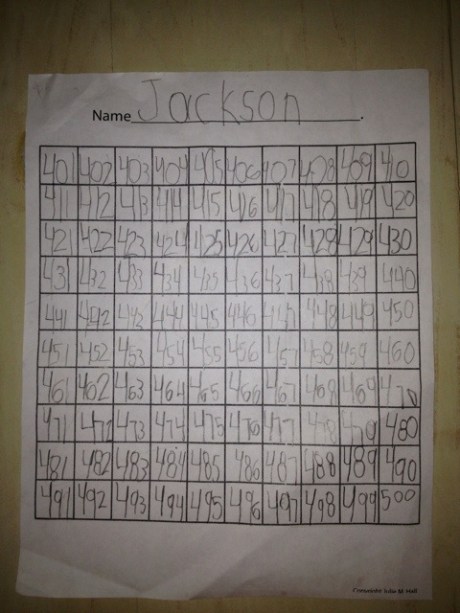 Name Jackson.
401 402 403 404 405 406 407 408 409 410
411 412 413 414 415 416 417 418 419 420
421 422 423 424 425 426 427 428 429 430
431 432 433 434 435 436 437 438 439 440
441 442 443 444 445 446 447 448 449 450
451 452 453 454 455 456 457 458 459 460
461 462 463 464 465 466 467 468 469 470
471 472 473 474 475 476 477 478 479 480
481 482 483 484 485 486 487 488 489 490
491 492 493 494 495 496 497 498 499 500